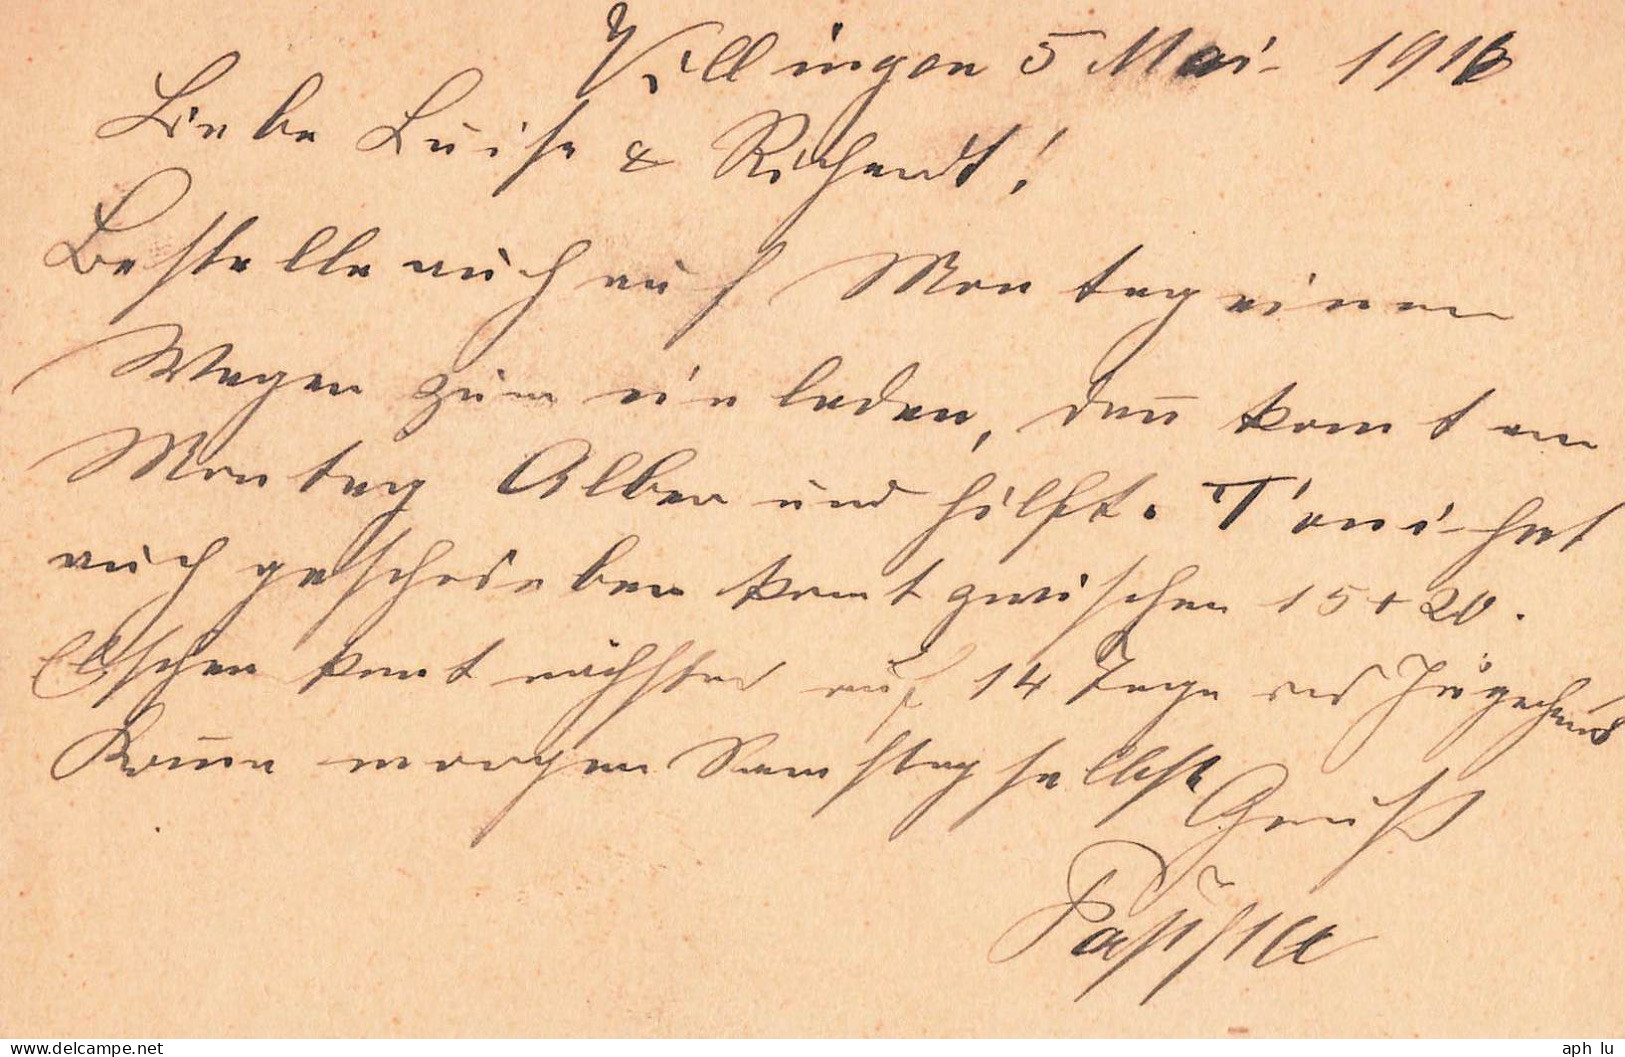 Villingen 5 Mai 1916
Liebe Luise & Richardt!
Bestelle auch auf Montag einen
Wagen zum einladen, dan̄ komt am
Montag Alber und hilft. Toni hat
auch geschrieben komt zwischen 15 + 20.
komt nächster auf 14 Tage
Kom̄e morgen Samstag selbst
Gruß